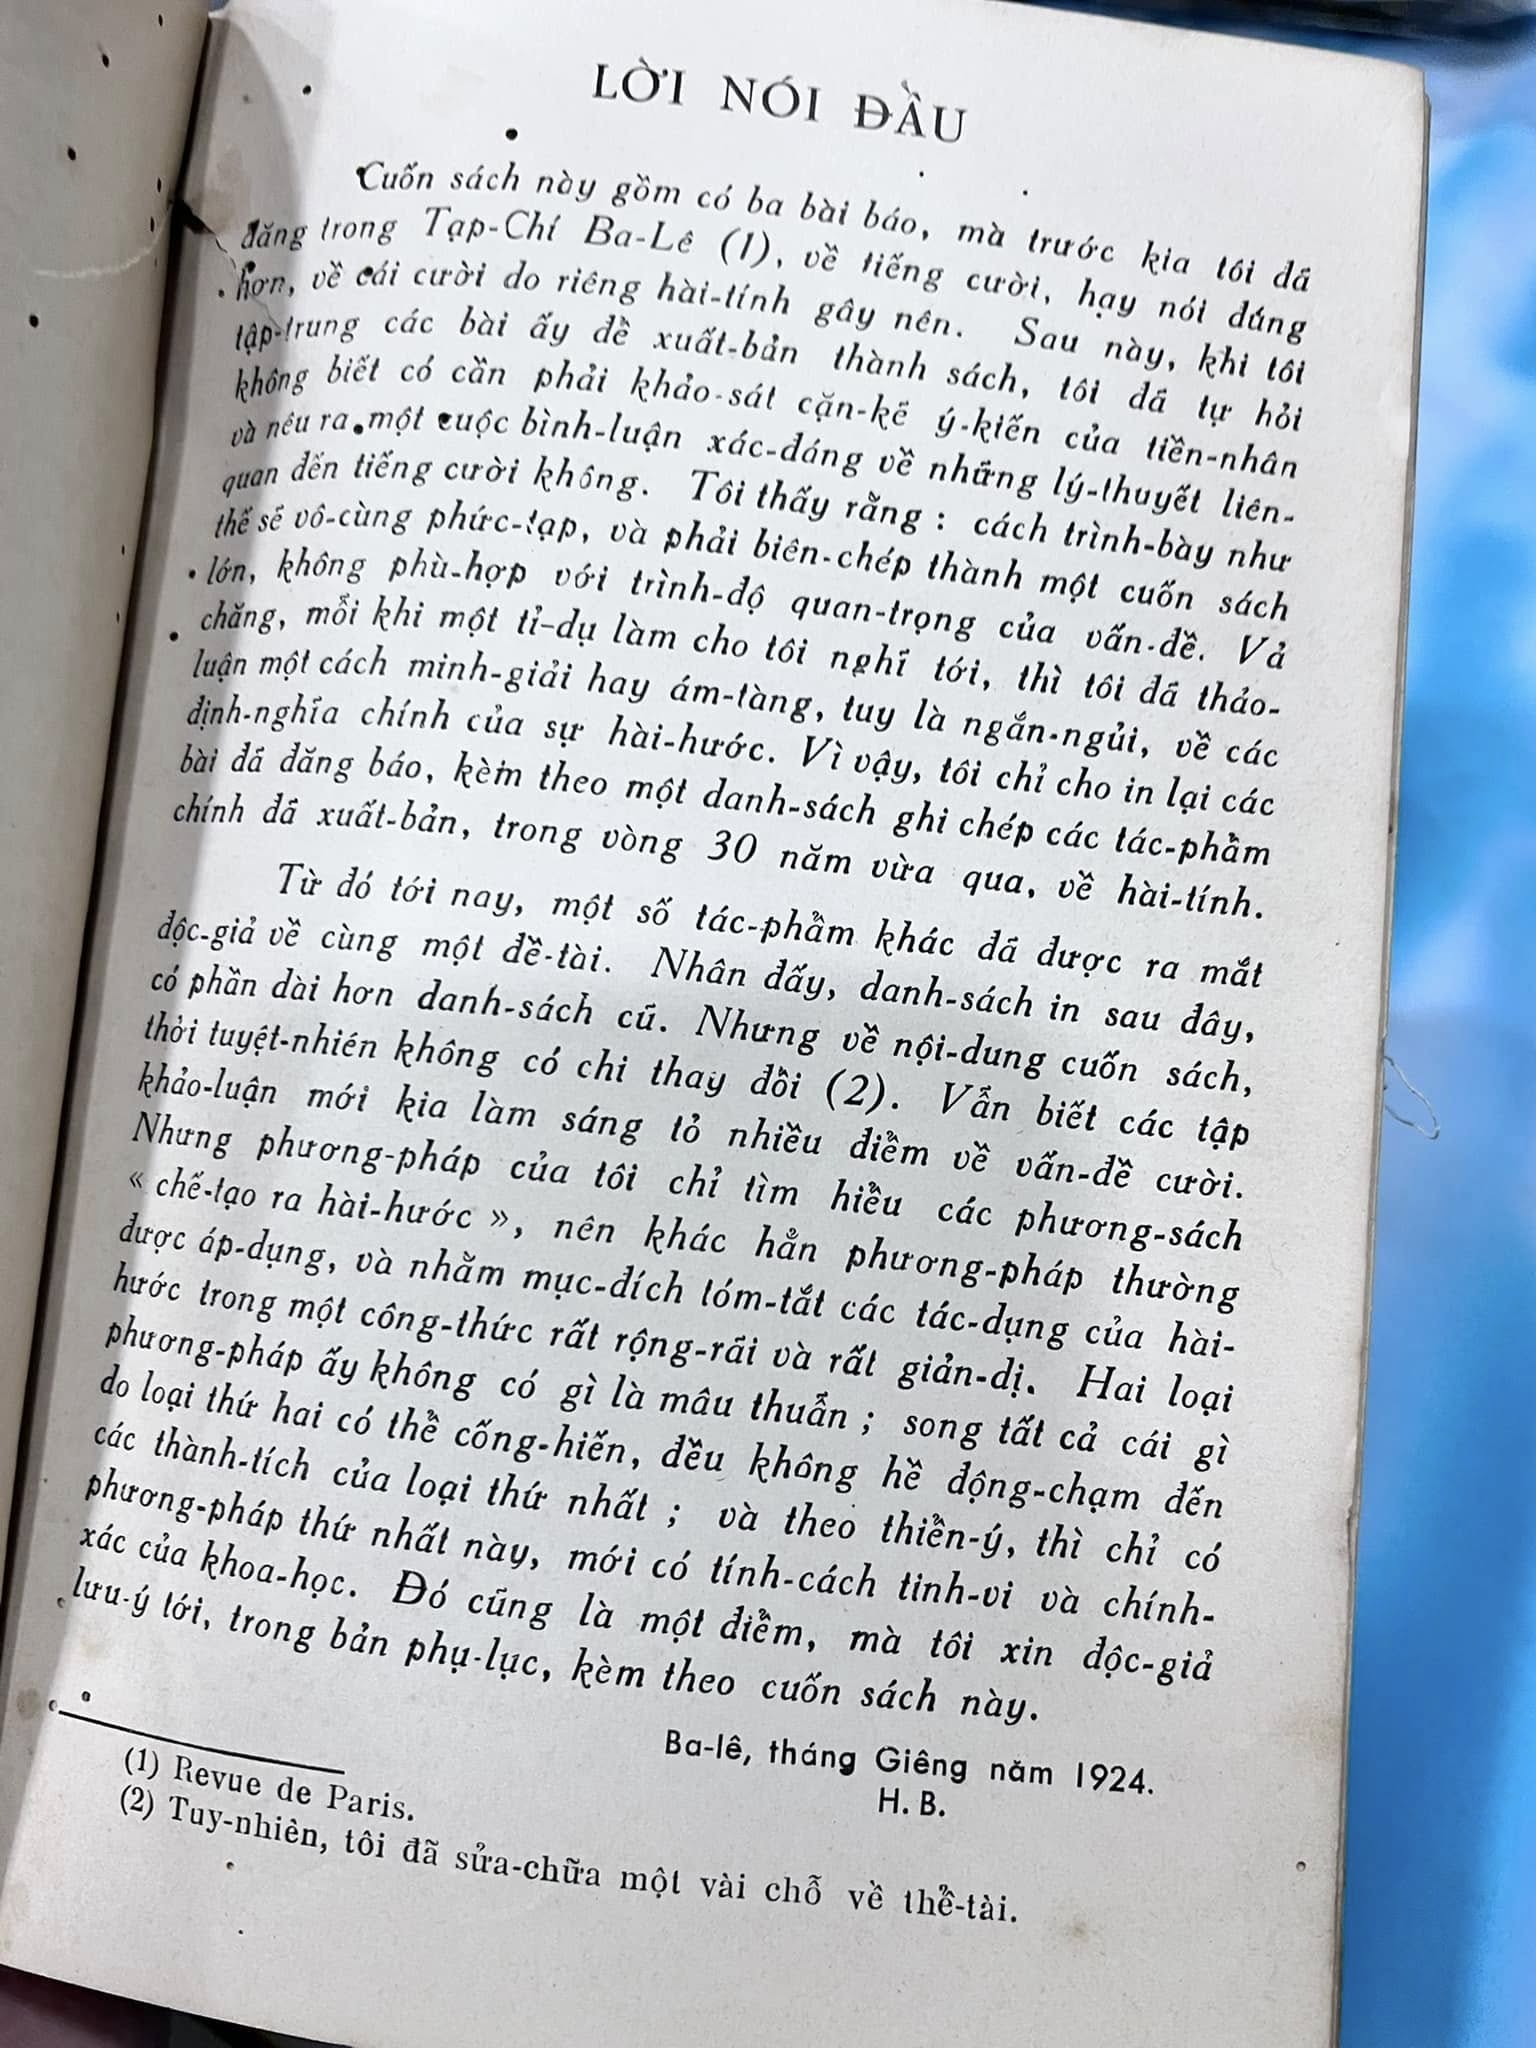 LỜI NÓI ĐẦU
Cuốn sách này gồm có ba bài báo, mà trước kia tôi đã
đăng trong Tạp-Chí Ba-Lê (1), về tiếng cười, hạy nói đúng
hơn, về cái cười do riêng hài-tính gây nên. Sau này, khi tôi
tập-trung các bài ấy để xuất-bản thành sách, tôi đã tự hỏi
không biết có cần phải khảo-sát cặn-kẽ ý-kiến của tiền-nhân
và nêu ra một cuộc bình-luận xác-đáng về những lý-thuyết liên-
quan đến tiếng cười không. Tôi thấy rằng : cách trình-bày như
thế sẽ vô-cùng phức-tạp, và phải biên-chép thành một cuốn sách
lớn, không phù-hợp với trình-độ quan-trọng của vấn-đề. Vả
chăng, mỗi khi một tỉ-dụ làm cho tôi nghĩ tới, thì tôi đã thảo-
luận một cách minh-giải hay ám-tàng, tuy là ngắn-ngủi, về các
định-nghĩa chính của sự hài-hước. Vì vậy, tôi chỉ cho in lại các
bài đã đăng báo, kèm theo một danh-sách ghi chép các tác-phẩm
chính đã xuất-bản, trong vòng 30 năm vừa qua, về hài-tính.
Từ đó tới nay, một số tác-phẩm khác đã được ra mắt
độc-giả về cùng một đề-tài. Nhân đấy, danh-sách in sau đây,
có phần dài hơn danh-sách cũ. Nhưng về nội-dung cuốn sách,
thời tuyệt-nhiên không có chi thay đổi (2). Vẫn biết các tập
khảo-luận mới kia làm sáng tỏ nhiều điểm về vấn-đề cười.
Nhưng phương-pháp của tôi chỉ tìm hiểu các phương-sách
« chế-tạo ra hài-hước », nên khác hẳn phương-pháp thường
được áp-dụng, và nhằm mục-đích tóm-tắt các tác-dụng của hài-
hước trong một công-thức rất rộng-rãi và rất giản-dị. Hai loại
phương-pháp ấy không có gì là mâu thuẫn ; song tất cả cái gì
do loại thứ hai có thể cống-hiến, đều không hề động-chạm đến
các thành-tích của loại thứ nhất ; và theo thiển-ý, thì chỉ có
phương-pháp thứ nhất này, mới có tính-cách tinh-vi và chính-
xác của khoa-học. Đó cũng là một điểm, mà tôi xin độc-giả
lưu-ý tới, trong bản phụ-lục, kèm theo cuốn sách này.
Ba-lê, tháng Giêng năm 1924.
H. B.
(1) Revue de Paris.
(2) Tuy-nhiên, tôi đã sửa-chữa một vài chỗ về thể-tài.